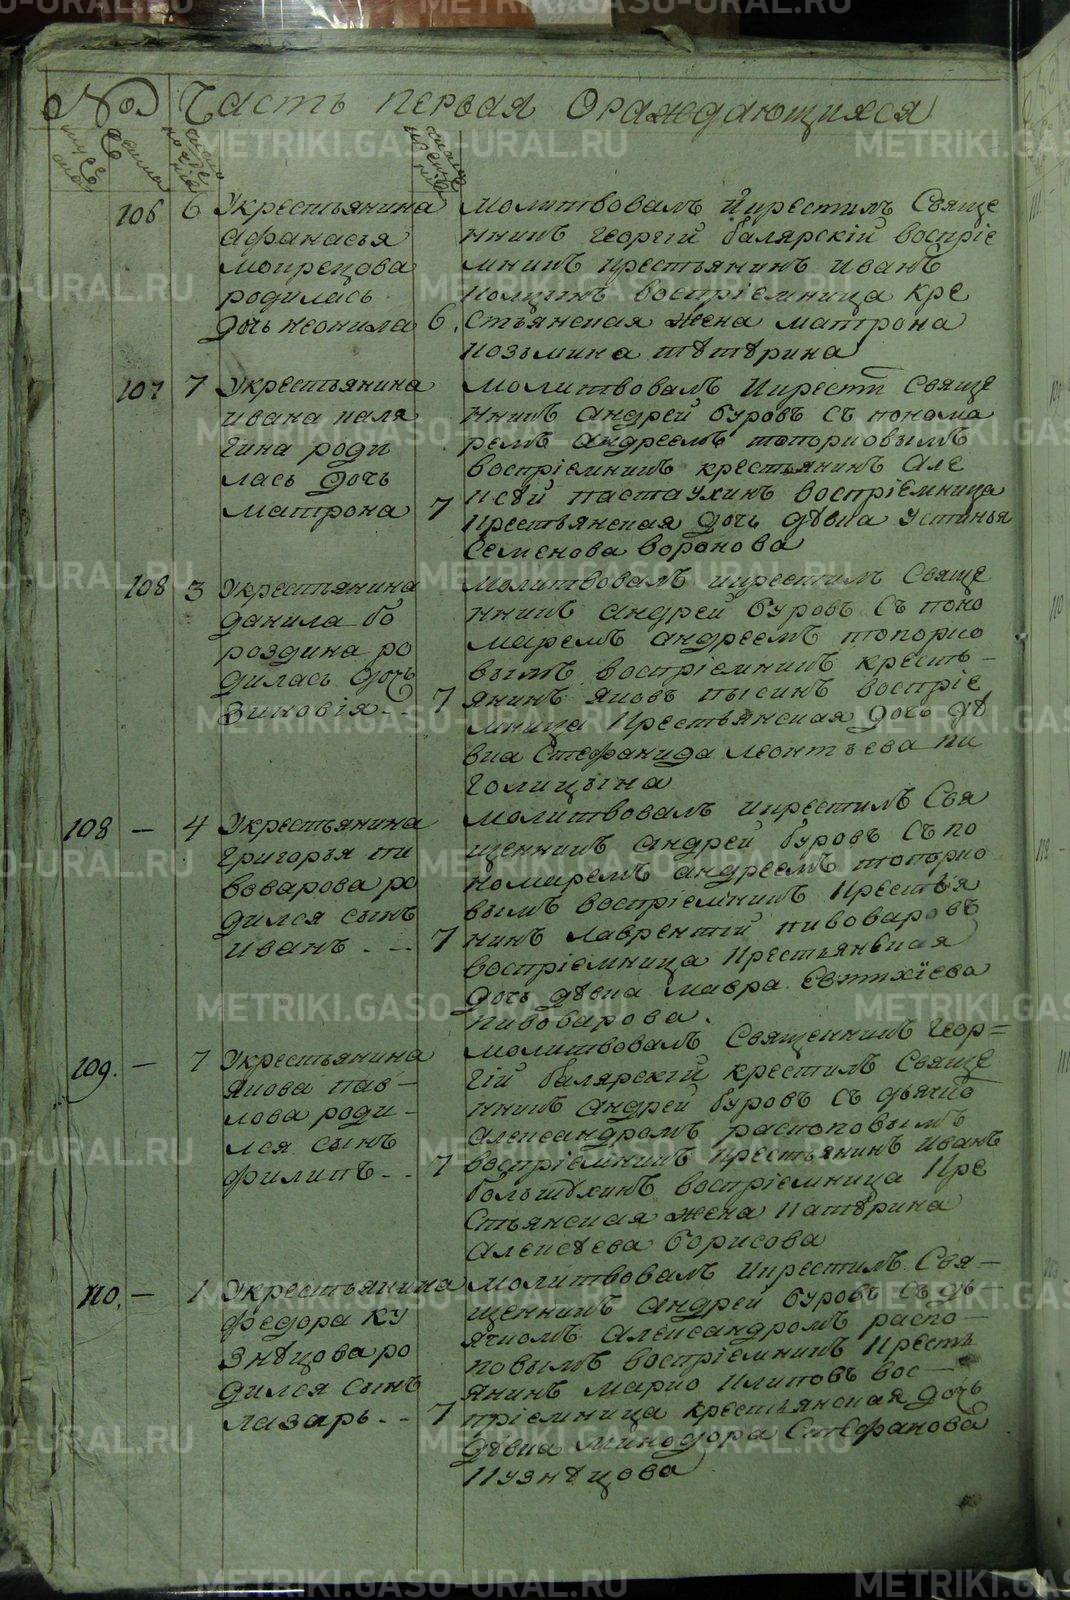 № Часть первая Ораждающихся
106 6 Укрестьянина
Афанасья
Мокрецова
родилась
дочь неонила 6.
молитвовалъ Икрестилъ Свяще
нникъ Георгій балярскій воспріе
мникъ крестьянинъ иванъ
воспріемница кре
стьянская жена матрона
козьмина тѣтѣрина
107 7 Укрестьянина
ивана каля
гина роди
лась дочь
матрона 7
молитвовалъ Икрести Свяще
нникъ Андрей буровъ съ понома
ремъ Андреемъ топорковымъ
воспріемникъ крестьянинъ але
ксѣй пастаухинъ воспріемница
крестьянская дочь дѣвка устинья
Семенова воронова
108 3 Укрестьянина
данила бо
роздина ро
дилась дочь
Зиновія 7
молитвовалъ икрестилъ Свяще
нникъ Андрей буровъ съ поно
маремъ Андреемъ топорко
вымъ воспріемникъ кресть-
янинъ яковъ пысинъ воспріе
мница крестьянская дочь дѣ
вка Стефанида леонтьева пи
голицына
108 — 4 Укрестьянина
григорья пи
воварова ро
дился сынъ
иванъ 7
молитвовалъ икрестилъ Свя
щенникъ Андрей буровъ съ по
номаремъ Андреемъ топорко
вымъ воспріемникъ крестья
нинъ лаврентій пивоваровъ
воспріемница крестьянская
дочь дѣвка мавра Евтихіева
пивоварова.
109. — 7 Укрестьянина
якова пав-
лова роди-
лся сынъ
филипъ 7
молитвовалъ Священникъ Геор=
гій балярскій крестилъ Свяще
нникъ Андрей буровъ съ дьячко
Александромъ распоповымъ
воспріемникъ крестьянинъ иванъ
болышухинъ воспріемница кре
стьянская жена катѣрина
Алексѣева борисова
110. — 1 Укрестьянина
федора ку
знѣцова ро
дился сынъ
лазарь 7
молитвовалъ икрестилъ Свя-
щенникъ Андрей буровъ съ дь-
ячкомъ Александромъ распо-
повымъ воспріемникъ кресть
янинъ марко клиповъ вос-
пріемница крестьянская дочь
дѣвка минодора Стефанова
кузнѣцова
METRIKI.GASO-URAL.RU